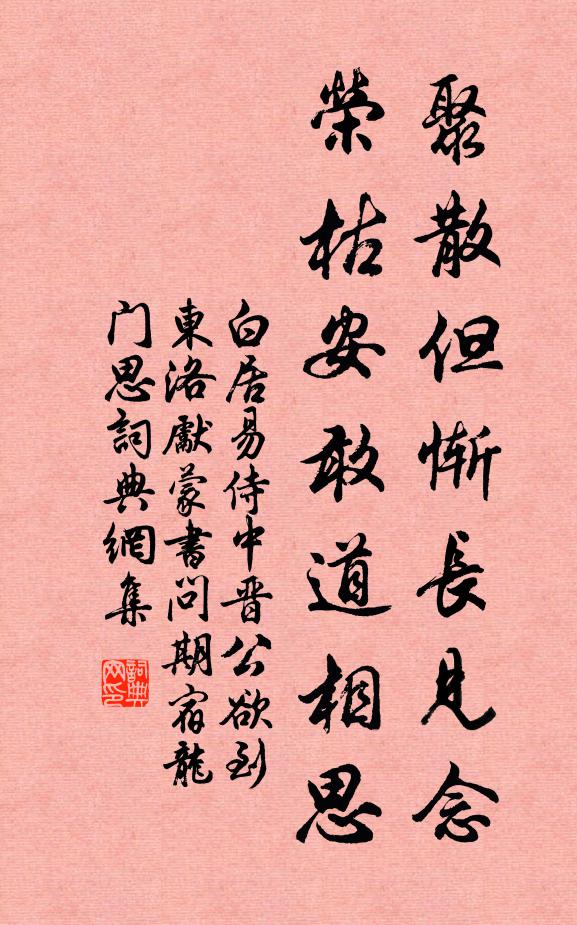 聚散但慚長見念
榮枯安敢道相思
白居易侍中晋公欲到
東洛獻蒙書問期宿龍
門思詞典網集
詞典
网印